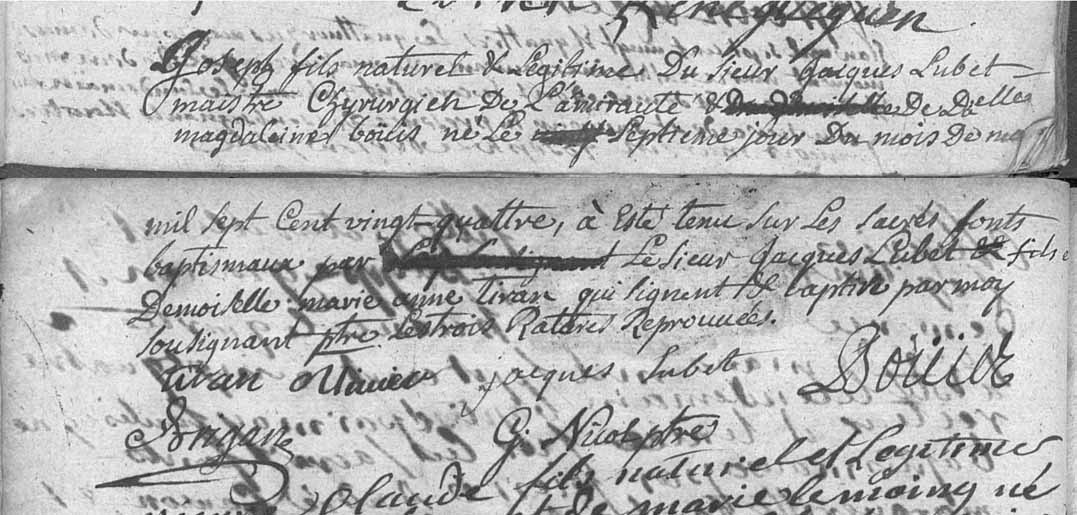 Joseph fils naturel & Legitime Du sieur Jacques Lubet
maistre Chyrurgien De L'amirauté & De Dlle
magdaleine boüis né Le Septieme jour Du mois De may
mil sept Cent vingt quattre, à Esté tenu sur Les sacrés fonts
baptismaux par Le sieur Jacques Lubet fils &
Demoiselle marie anne tiran qui signent & baptisé par moy
sousignant ptre Lestrois Ratures Reprouuées.
tiran jacques Lubet
G. Nicol ptre
Claude fils naturel et Legitime
et de marie lemoing né